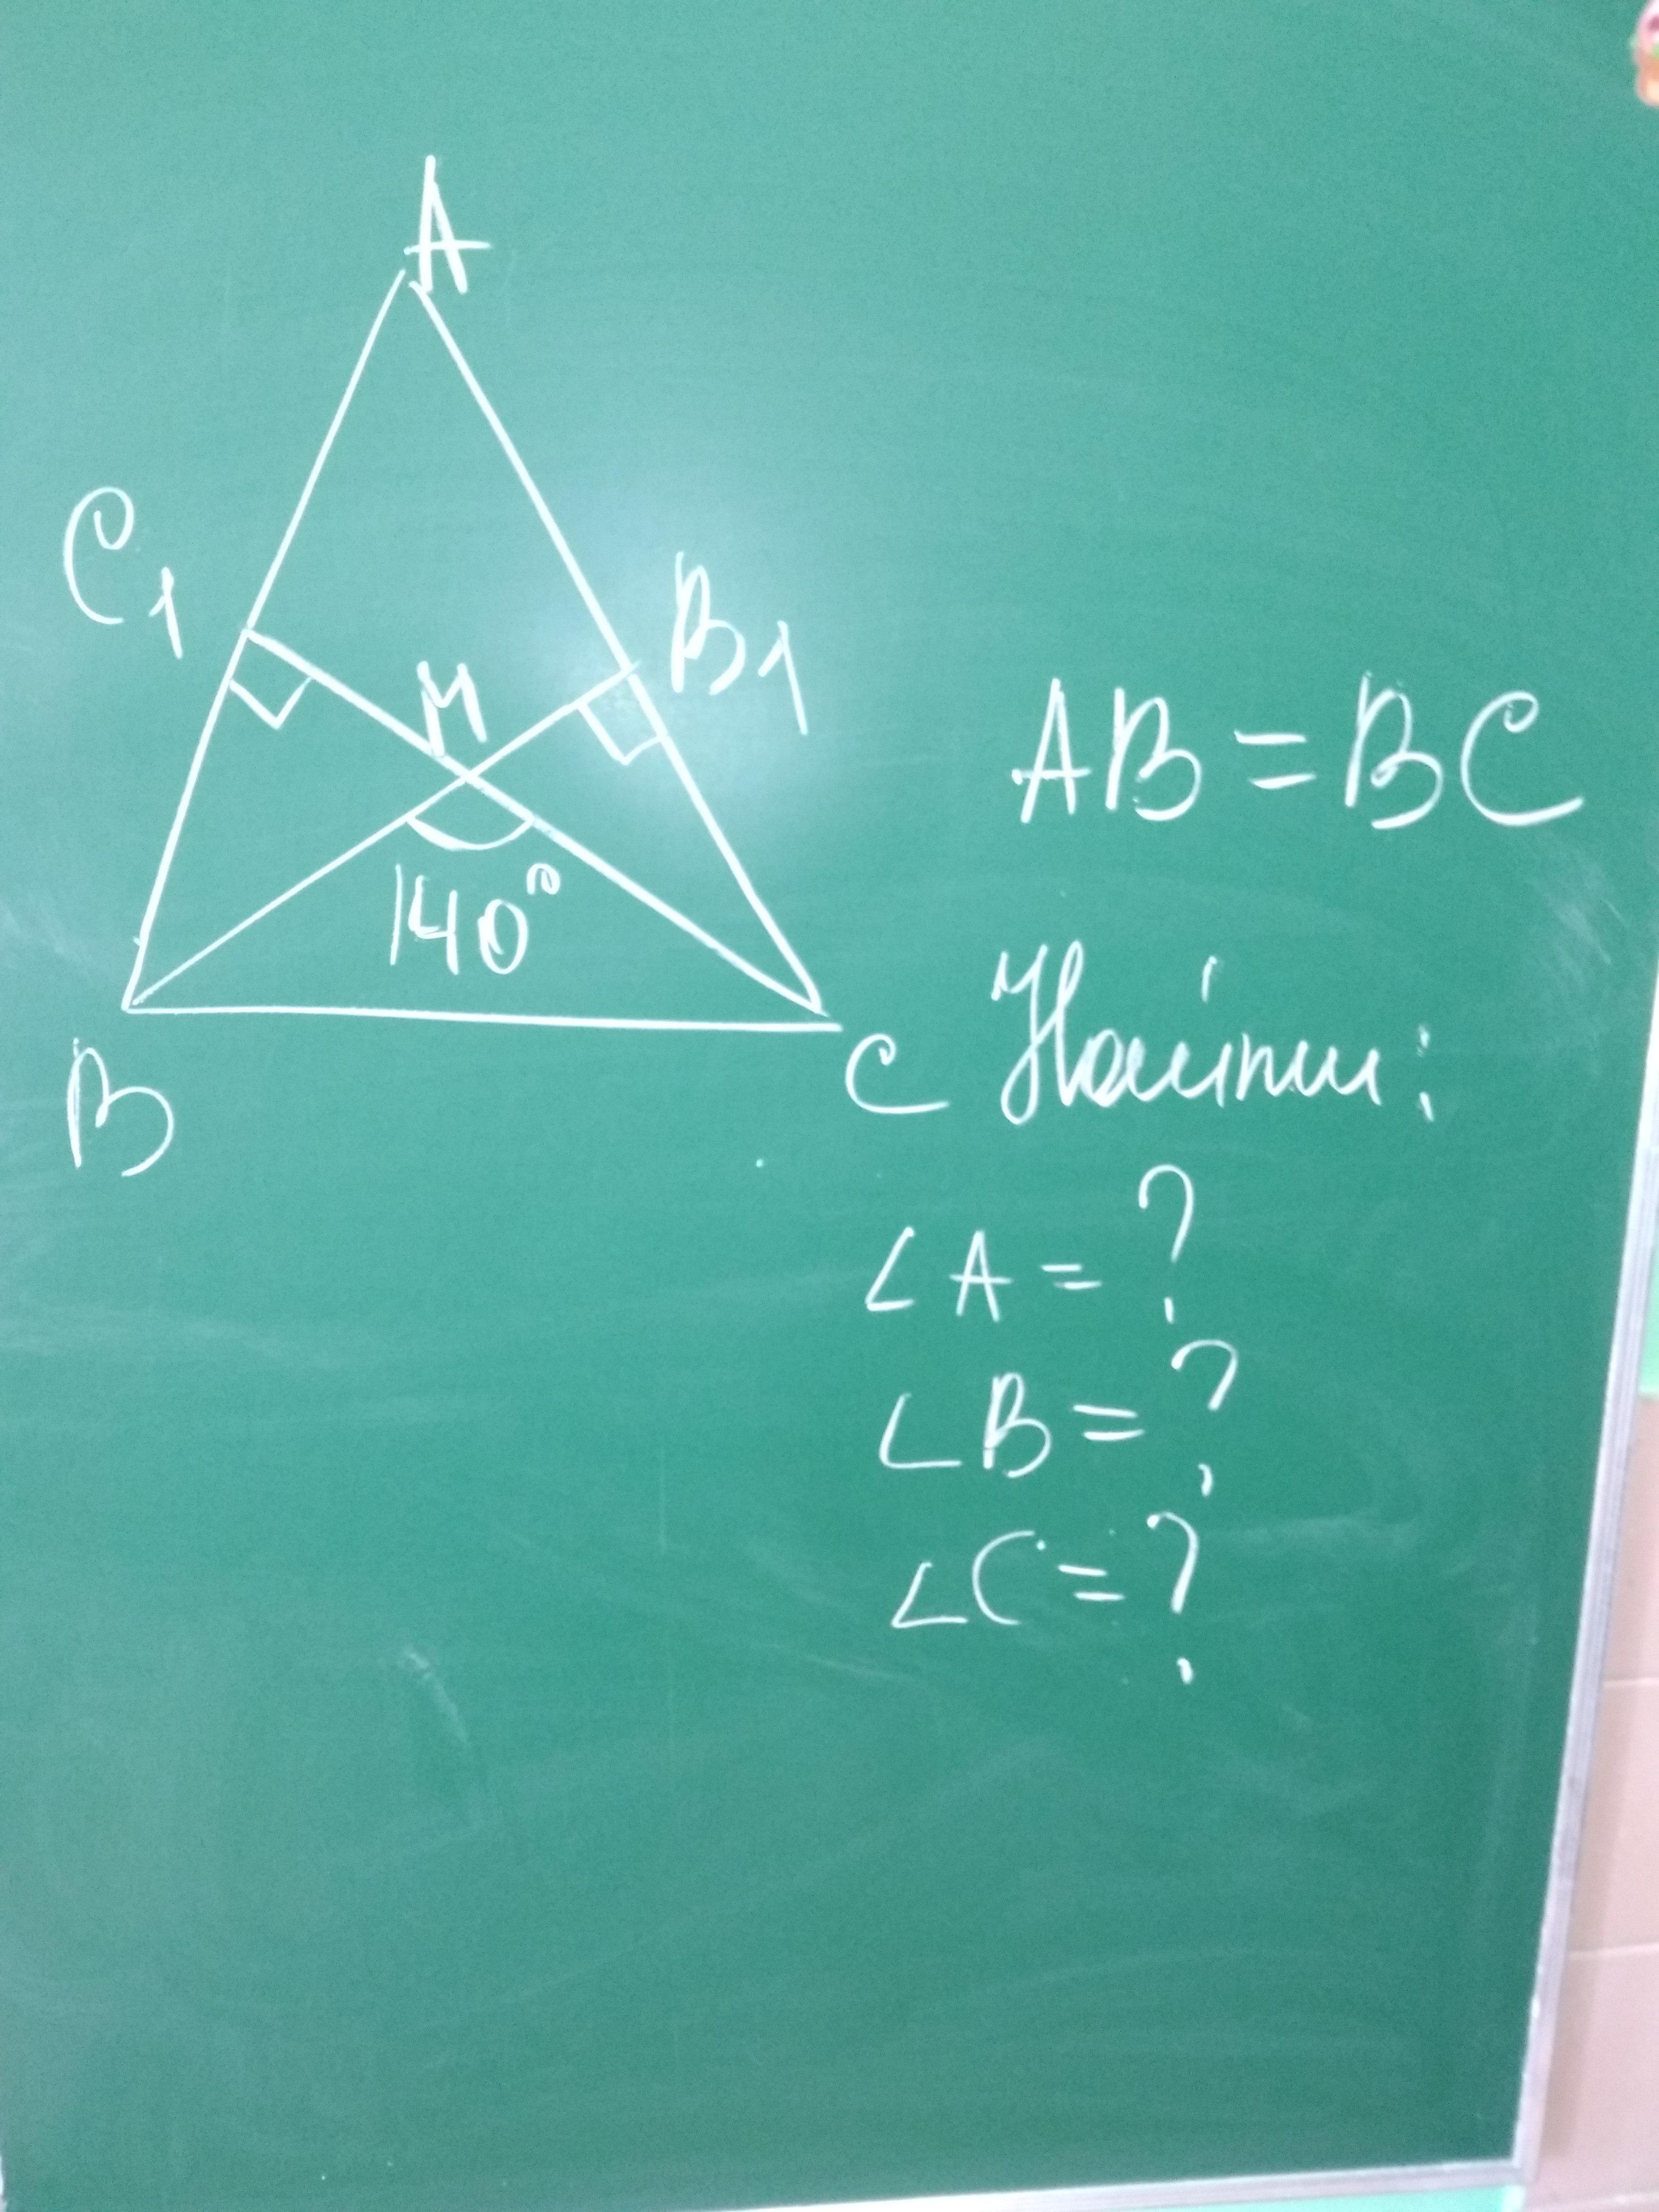 A
C₁
B₁
M
140°
B
C
AB = BC
Найти:
∠A = ?
∠B = ?
∠C = ?